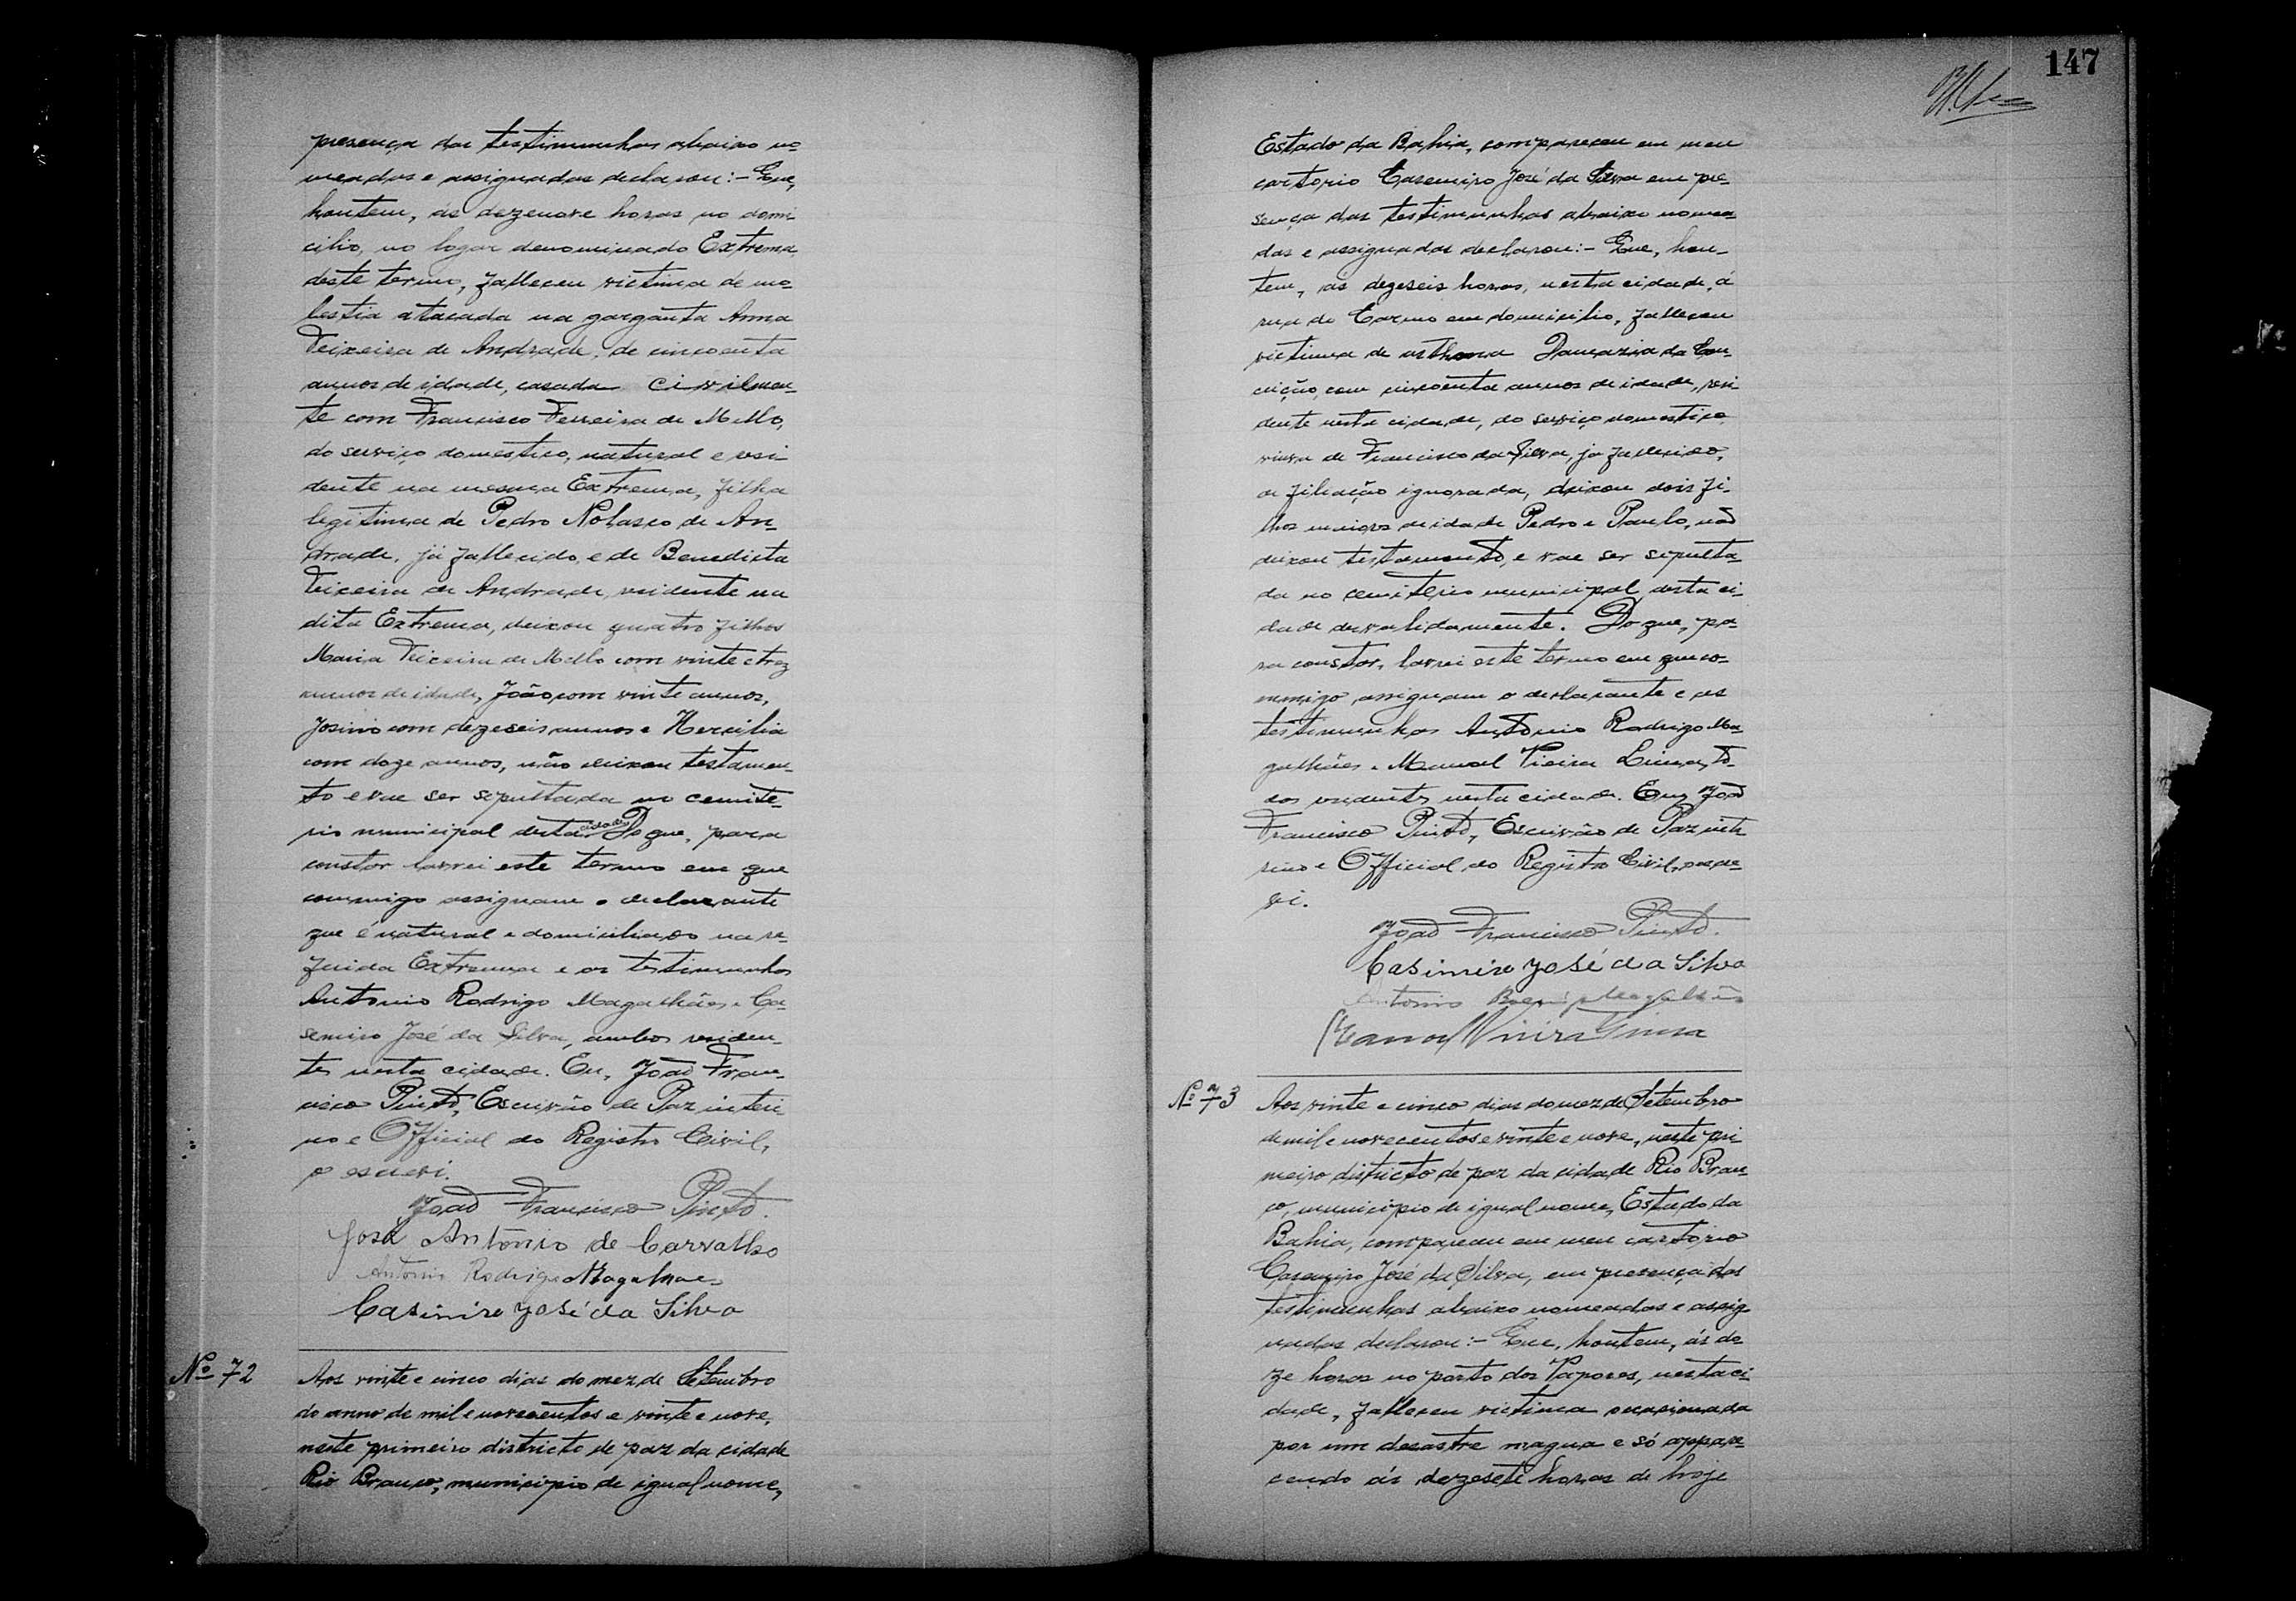 presença das testimunhas abaixo no-
meados e assignados declarou:- Que,
hontem, ás dezenove horas no domi-
cilio, no logar denominado Extrema,
deste termo, falleceu victima de mo-
lestia atacada na garganta Anna
Teixeira de Andrade, de cincoenta
annos de idade, casada civilmen-
te com Francisco Ferreira de Mello,
do serviço domestico, natural e resi-
dente na mesma Extrema, filha
legitima de Pedro Nolasco de An-
drade, já fallecido, e de Benedicta
Teixeira de Andrade, residente na
dita Extrema, deixou quatro filhos
Maria Teixeira de Mello com vinte e trez
annos de idade, João com vinte annos,
Josino com dezeseis annos e Hercilia
com doze annos, não deixou testamen-
to e vae ser sepultada no cemite-
rio municipal desta cidade. Do que, para
constar lavrei este termo em que
commigo assignam o declarante
que é natural e domiciliado na re-
ferida Extrema e as testimunhas
Antonio Rodrigo Magalhães e Ca-
semiro José da Silva, ambos residen-
tes nesta cidade. Eu, João Fran-
cisco Pinto, Escrivão de Paz interi-
no e Official do Registro Civil,
o escrevi.
João Francisco Pinto.
José Antonio de Carvalho
Antonio Rodrigo Magalhae
Casimiro José da Silva
Nº 72
Aos vinte e cinco dias do mez de Setembro
do anno de mil e novecentos e vinte e nove,
neste primeiro districto de paz da cidade
Rio Branco, municipio de igual nome,
147
Estado da Bahia, compareceu em meu
cartorio Casemiro José da Silva em pre-
sença das testimunhas abaixo nomea-
das e assignadas declarou:- Que, hon-
tem, ás dezeseis horas, nesta cidade, á
rua do Carmo em domicilio, falleceu
victima de asthma Damazia da Con-
ceição, com cincoenta annos de idade, resi-
dente nesta cidade, do serviço domestico
viuva de Francisco da Silva, já fallecido,
de filiação ignorada, deixou dois fi-
lhos maiores de idade Pedro e Paulo, não
deixou testamento, e vae ser sepulta-
da no cemiterio municipal desta ci-
dade desvalidamente. Do que, pa-
ra constar, lavrei este termo em que co-
mmigo assignam o declarante e as
testimunhas Antonio Rodrigo Ma-
galhães e Manoel Vieira Lima, to-
dos residentes nesta cidade. Eu, João
Francisco Pinto, Escrivão de Paz inte-
rino e Official do Registro Civil, o escre-
vi.
João Francisco Pinto.
Casimiro José da Silva
Antonio Rodrigo Magalhães
Manoel Vieira Lima
Nº 73
Aos vinte e cinco dias do mez de Setembro
de mil e novecentos e vinte e nove, neste pri-
meiro districto de paz da cidade Rio Bran-
co, municipio de igual nome, Estado da
Bahia, compareceu em meu cartorio
Casemiro José da Silva, em presença das
testimunhas abaixo nomeadas e assig-
nadas declarou:- Que, hontem, ás do-
ze horas no porto dos Vapores, nesta ci-
dade, falleceu victima occasionada
por um desastre nagua e só appare-
cendo ás dezesete horas de hoje